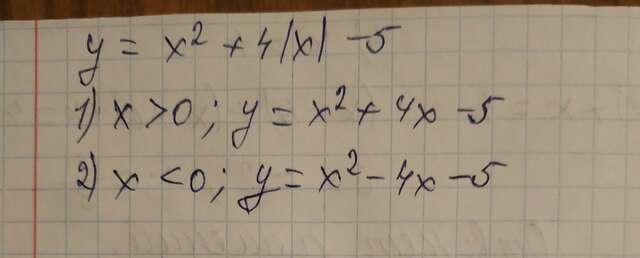 y = x² + 4|x| - 5
1) x > 0; y = x² + 4x - 5
2) x < 0; y = x² - 4x - 5